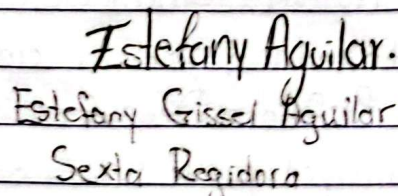 Estefany Aguilar.
Estefany Gissel Aguilar
Sexta Regidora